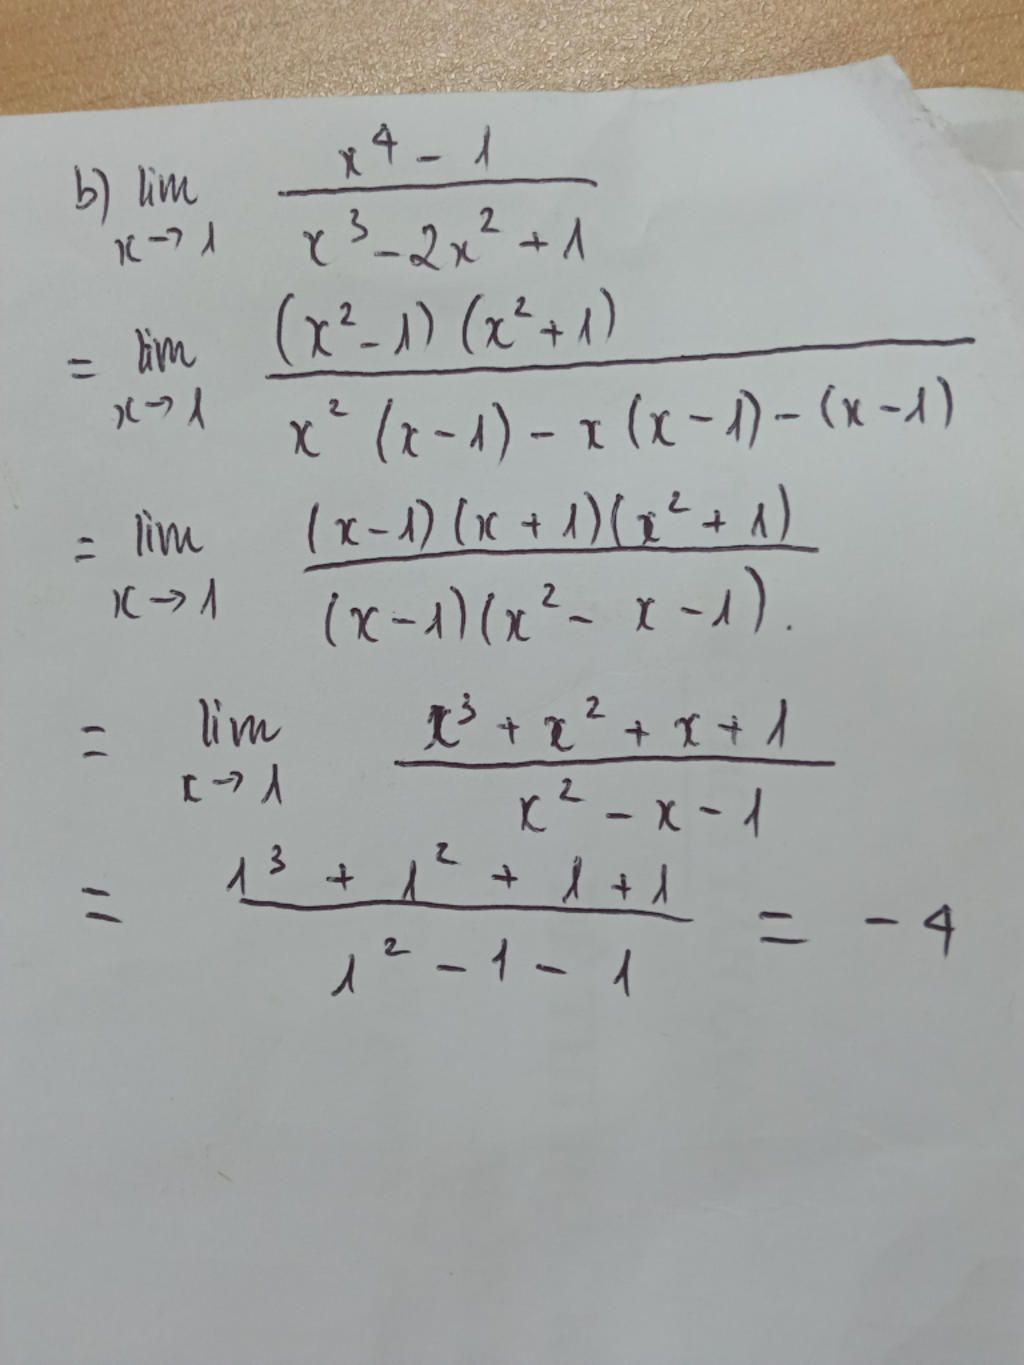 b) lim x→1 (x⁴ - 1) / (x³ - 2x² + 1)
= lim x→1 ((x² - 1)(x² + 1)) / (x²(x - 1) - x(x - 1) - (x - 1))
= lim x→1 ((x - 1)(x + 1)(x² + 1)) / ((x - 1)(x² - x - 1)).
= lim x→1 (x³ + x² + x + 1) / (x² - x - 1)
= (1³ + 1² + 1 + 1) / (1² - 1 - 1) = - 4